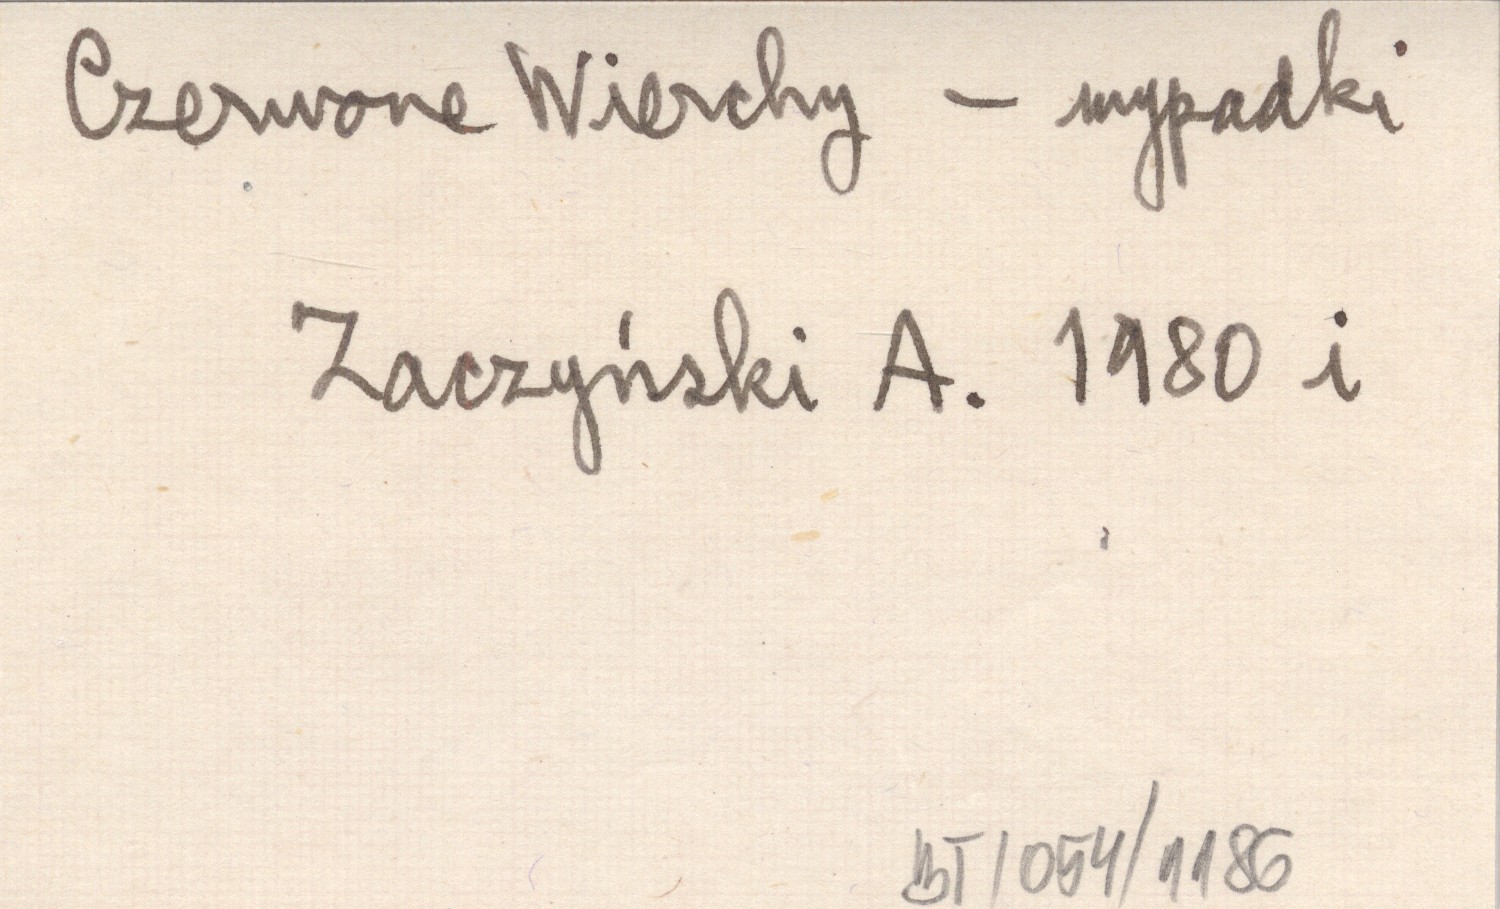 Czerwone Wierchy – wypadki
Zaczyński A. 1980 i
BT/054/1186